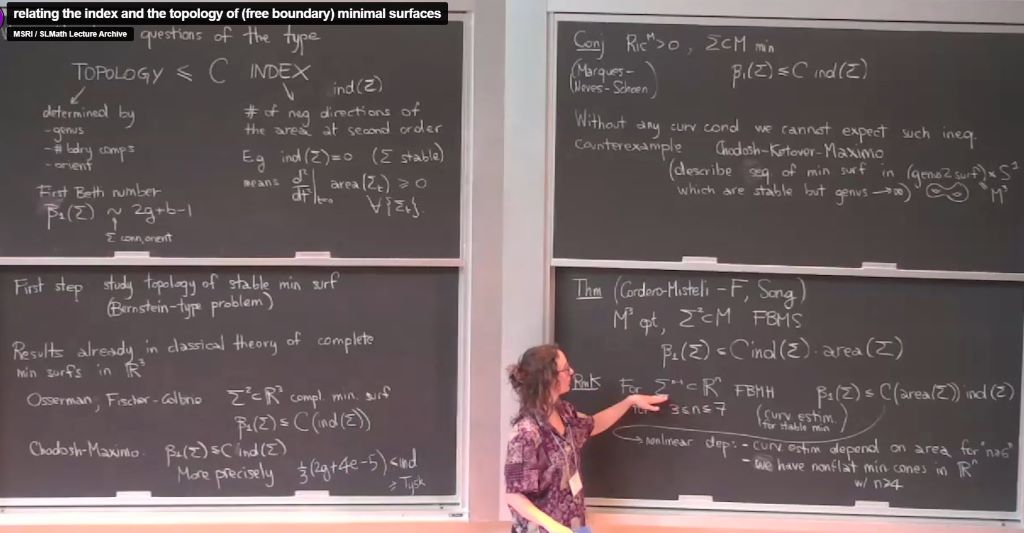 relating the index and the topology of (free boundary) minimal surfaces
MSRI / SLMath Lecture Archive
questions of the type
TOPOLOGY ≤ C INDEX
ind(Σ)
determined by
- genus
- # bdry comps
- orient
First Betti number
β₁(Σ) ~ 2g+b-1
Σ conn, orient
# of neg directions of
the area at second order
E.g ind(Σ)=0 (Σ stable)
means d²/dt²|t=0 area(Σt) ≥ 0
∀{Σt}.
First step study topology of stable min surf
(Bernstein-type problem)
Results already in classical theory of complete
min surfs in ℝ³
Osserman, Fischer-Colbrie Σ²⊂ℝ³ compl. min. surf
β₁(Σ) ≤ C(ind(Σ))
Chodosh-Maximo. β₁(Σ) ≤ C ind(Σ)
More precisely ⅓(2g+4e-5) ≤ ind
Tysk
Conj Ric^M>0, Σ⊂M min
(Marques-
Neves-Schoen)
β₁(Σ) ≤ C ind(Σ)
Without any curv cond we cannot expect such ineq.
counterexample Chodosh-Ketover-Maximo
(describe seq of min surf in (genus 2 surf) × S¹
which are stable but genus → ∞)
M³
Thm (Cordero-Misteli - F, Song)
M³ cpt, Σ²⊂M FBMS
β₁(Σ) ≤ C ind(Σ) · area(Σ)
Rmk For Σⁿ⁻¹⊂ℝⁿ FBMH β₁(Σ) ≤ C(area(Σ)) ind(Σ)
for 3≤n≤7 (curv estim. for stable min)
nonlinear dep: - curv estim depend on area for "n≥6"
- we have nonflat min cones in ℝⁿ
w/ n≥4